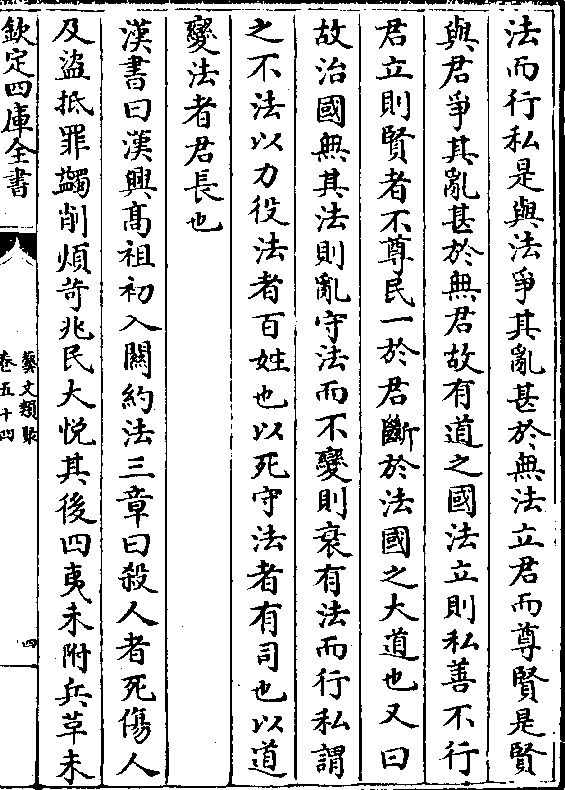 法而行私是與法爭其亂甚於無法立君而尊賢是賢
與君爭其亂甚於無君故有道之國法立則私善不行
君立則賢者不尊民一於君斷於法國之大道也又曰
故治國無其法則亂守法而不變則衰有法而行私謂
之不法以力役法者百姓也以死守法者有司也以道
變法者君長也
漢書曰漢興髙祖初入關約法三章曰殺人者死傷人
及盜抵罪蠲削煩苛兆民大悅其後四夷未附兵革未
欽定四庫全書
藝文類聚
卷五十四
四